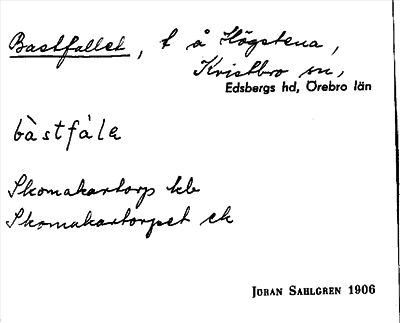 Bastfallet, t å Högstena,
Kristbro sn,
Edsbergs hd, Örebro län
bàstfàlɐ
Skomakartorp kb
Skomakartorpet ek
JOHAN SAHLGREN 1906